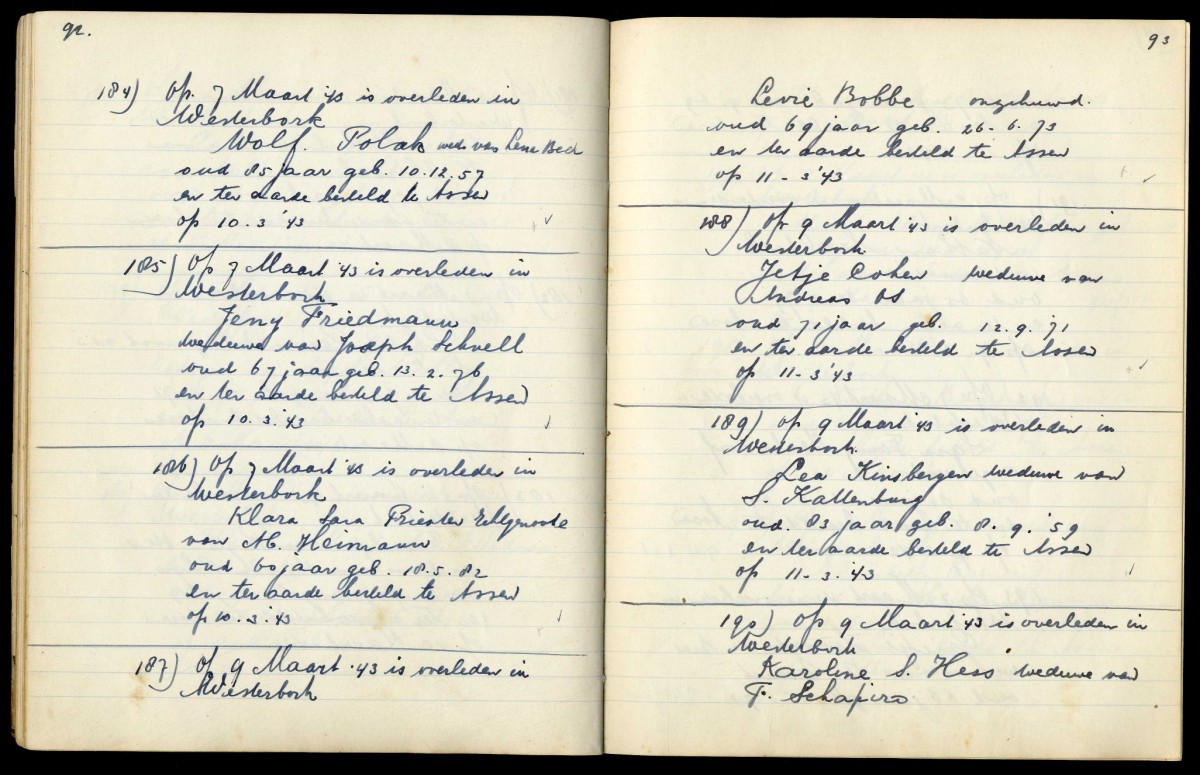 92.
184) Op. 7 Maart '43 is overleden in
Westerbork
Wolf. Polak wedn van Lena Bed
oud 85 jaar geb. 10.12.57
en ter aarde besteld te Assen
op 10.3 '43
185) Op 7 Maart '43 is overleden in
Westerbork
Jeny Friedmann
weduwe van Joseph Schnell
oud 67 jaar geb. 13.2.76
en ter aarde besteld te Assen
op 10.3.'43
186) Op 7 Maart '43 is overleden in
Westerbork
Klara Sara Priester Echtgenoote
van Ab. Heimann
oud 60 jaar geb. 18.5.82
en ter aarde besteld te Assen
op 10.3.'43
187) Op 9 Maart '43 is overleden in
Westerbork
93
Levie Bobbe ongehuwd.
oud 69 jaar geb. 26-6.73
en ter aarde besteld te Assen
op 11-3 '43
188) Op 9 Maart '43 is overleden in
Westerbork
Jetje Cohen weduwe van
Andreas Os
oud 71 jaar geb. 12.9.'71
en ter aarde besteld te Assen
op 11-3 '43
189) op 9 Maart '43 is overleden in
Westerbork.
Lea Kinsbergen weduwe van
S. Kattenburg
oud. 83 jaar geb. 8.9.'59
en ter aarde besteld te Assen
op 11-3.'43
190) Op 9 Maart '43 is overleden in
Westerbork
Karoline S. Hess weduwe van
F. Schapiro